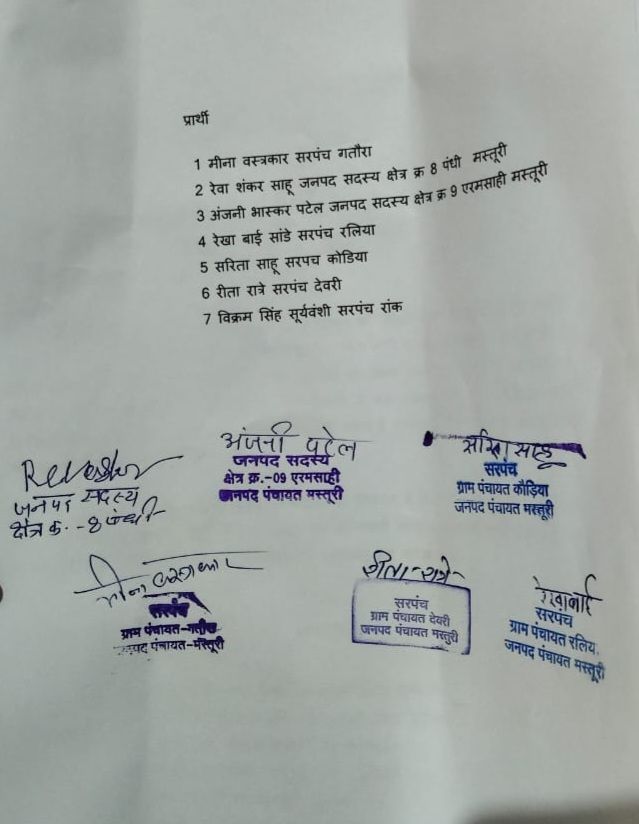 प्रार्थी
1 मीना वस्त्रकार सरपंच गतौरा
2 रेवा शंकर साहू जनपद सदस्य क्षेत्र क्र 8 पंधी मस्तूरी
3 अंजनी भास्कर पटेल जनपद सदस्य क्षेत्र क्र 9 एरमसाही मस्तूरी
4 रेखा बाई सांडे सरपंच रलिया
5 सरिता साहू सरपच कोडिया
6 रीता रात्रे सरपंच देवरी
7 विक्रम सिंह सूर्यवंशी सरपंच रांक
अंजनी पटेल
जनपद सदस्य
क्षेत्र क्र.-09 एरमसाही
जनपद पंचायत मस्तूरी
सरिता साहू
सरपंच
ग्राम पंचायत कौड़िया
जनपद पंचायत मस्तूरी
जनपद सदस्य
क्षेत्र क्र. -8 पंधी
मीना वस्त्रकार
सरपंच
ग्राम पंचायत-
जनपद पंचायत-मस्तूरी
रीता रात्रे
सरपंच
ग्राम पंचायत देवरी
जनपद पंचायत मस्तुरी
रेखाबाई
सरपंच
ग्राम पंचायत रलिया
जनपद पंचायत मस्तूरी